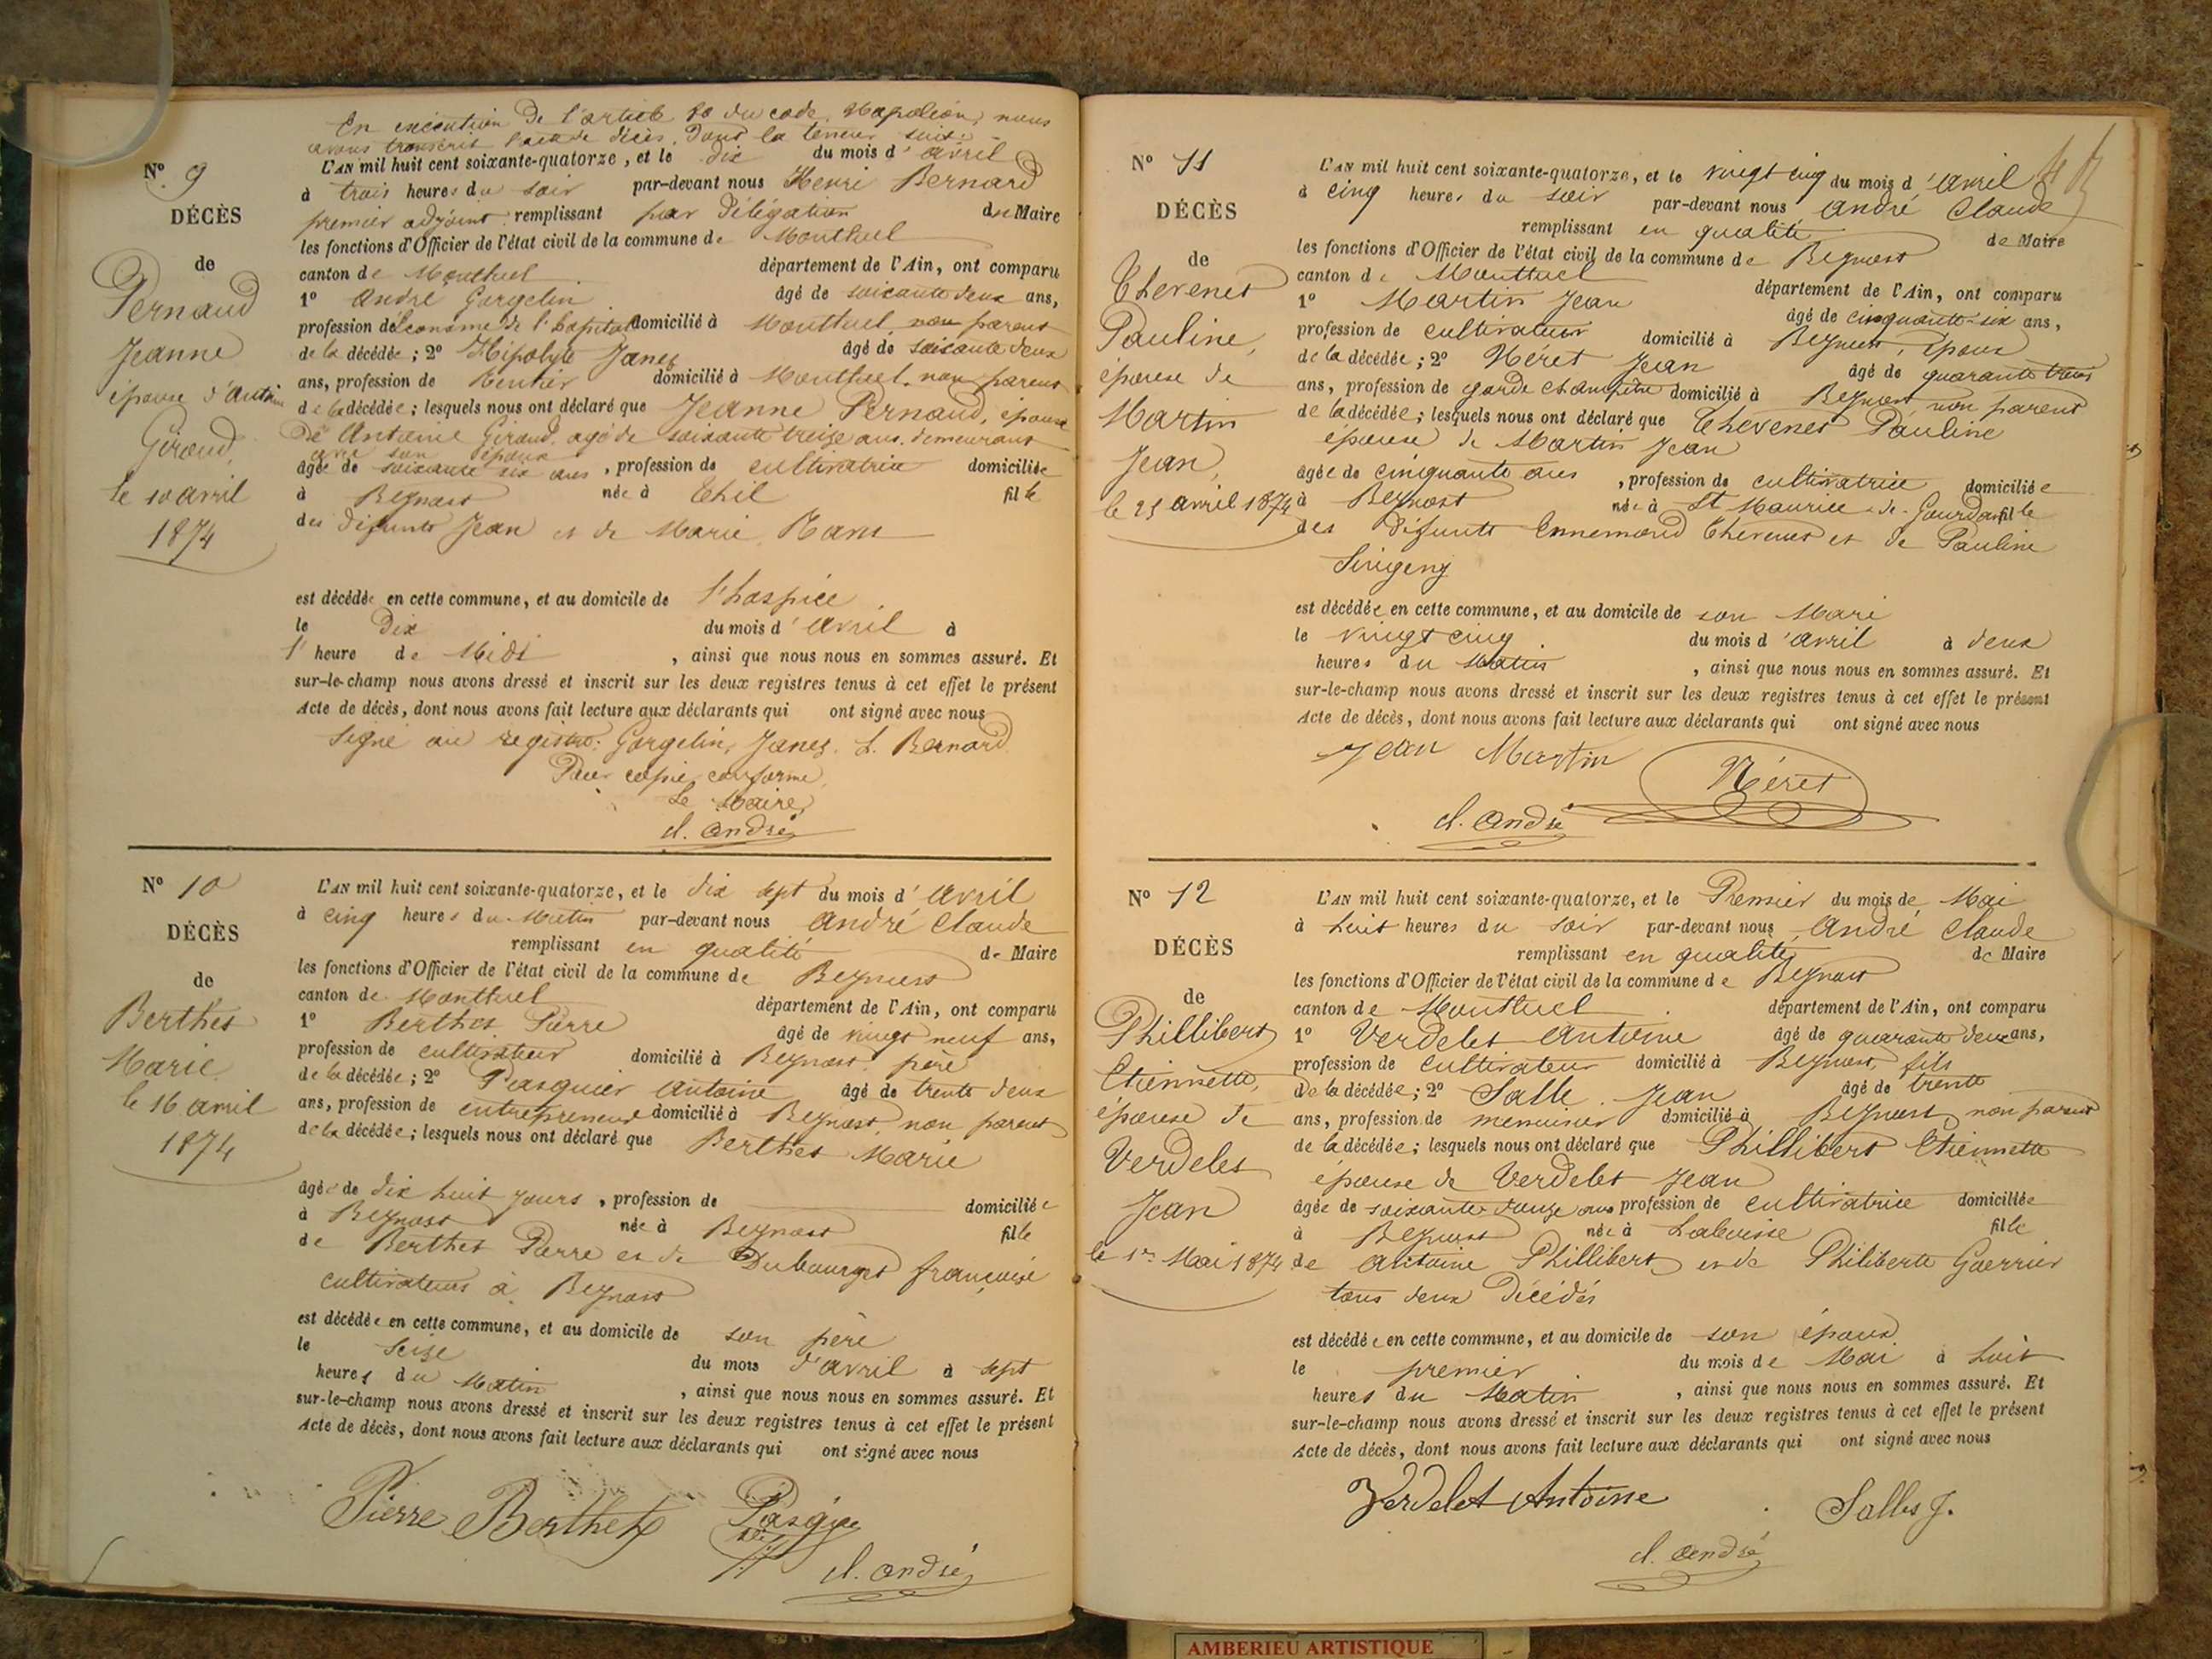 En exécution de l'article 80 du code Napoléon, nous
avons transcrit l'acte de décès, dont la teneur suit:
No 9
L'AN mil huit cent soixante-quatorze, et le dix du mois d'avril
à trois heures du soir par-devant nous Henri Bernard
premier adjoint remplissant par délégation du Maire
les fonctions d'Officier de l'état civil de la commune de Montluel
canton de Montluel département de l'Ain, ont comparu
1º André Gorgelin âgé de soixante deux ans,
profession d'économe de l'hopital domicilié à Montluel, non parent
de la décédée; 2º Hipolyte Janez âgé de soixante deux
ans, profession de Rentier domicilié à Montluel, non parent
de la décédée; lesquels nous ont déclaré que Jeanne Pernaud, épouse
de Antoine Giroud, agé de soixante treize ans, demeurant
avec son épouse
âgée de soixante six ans, profession de cultivatrice domiciliée
à Beynost née à Thil fille
des défunts Jean et de Marie
est décédée en cette commune, et au domicile de l'hospice
le Dix du mois d'avril à
l'heure de Midi, ainsi que nous nous en sommes assuré. Et
sur-le-champ nous avons dressé et inscrit sur les deux registres tenus à cet effet le présent
Acte de décès, dont nous avons fait lecture aux déclarants qui ont signé avec nous
Signé au registre: Gorgelin, Janez, h. Bernard
Pour copie conforme,
Le Maire,
cl. andré
DÉCÈS
de
Pernaud
Jeanne
épouse d'Antoine
Giroud,
le 10 avril
1874
No 10
DÉCÈS
de
Berthet
Marie
le 16 avril
1874
L'AN mil huit cent soixante-quatorze, et le dix sept du mois d'avril
à cinq heures du Matin par-devant nous André Claude
remplissant en qualité de Maire
les fonctions d'Officier de l'état civil de la commune de Beynost
canton de Montluel département de l'Ain, ont comparu
1º Berthet Pierre âgé de vingt neuf ans,
profession de cultivateur domicilié à Beynost, père
de la décédée; 2º Pasquier Antoine âgé de trente deux
ans, profession de entrepreneur domicilié à Beynost, non parent
de la décédée; lesquels nous ont déclaré que Berthet Marie
âgée de dix huit jours, profession de domiciliée
à Beynost née à Beynost fille
de Berthet Pierre et de Dubourget françoise
cultivateurs à Beynost
est décédée en cette commune, et au domicile de son père
le seize du mois d'avril à sept
heures du Matin, ainsi que nous nous en sommes assuré. Et
sur-le-champ nous avons dressé et inscrit sur les deux registres tenus à cet effet le présent
Acte de décès, dont nous avons fait lecture aux déclarants qui ont signé avec nous
Pierre Berthet
cl. andré
No 11
DÉCÈS
de
Thevenet
Pauline,
épouse de
Martin
Jean,
le 25 avril 1874
L'AN mil huit cent soixante-quatorze, et le vingt cinq du mois d'avril
à cinq heures du soir par-devant nous André Claude
remplissant en qualité de Maire
les fonctions d'Officier de l'état civil de la commune de Beynost
canton de Montluel département de l'Ain, ont comparu
1º Martin Jean âgé de cinquante-six ans,
profession de cultivateur domicilié à Beynost, époux
de la décédée; 2º Néret Jean âgé de quarante trois
ans, profession de garde champêtre domicilié à Beynost non parent
de la décédée; lesquels nous ont déclaré que Thevenet Pauline
épouse de Martin Jean
âgée de cinquante ans, profession de cultivatrice domiciliée
à Beynost née à St Maurice de Gourdan fille
des défunts Ennemond Thevenet et de Pauline
est décédée en cette commune, et au domicile de son Mari
le vingt cinq du mois d'avril à deux
heures du Matin, ainsi que nous nous en sommes assuré. Et
sur-le-champ nous avons dressé et inscrit sur les deux registres tenus à cet effet le présent
Acte de décès, dont nous avons fait lecture aux déclarants qui ont signé avec nous
Jean Martin
Néret
cl. andré
No 12
DÉCÈS
de
Phillibert
Etiennette,
épouse de
Verdelet
Jean
le 1er Mai 1874
L'AN mil huit cent soixante-quatorze, et le Premier du mois de Mai
à huit heures du soir par-devant nous André Claude
remplissant en qualité de Maire
les fonctions d'Officier de l'état civil de la commune de Beynost
canton de Montluel département de l'Ain, ont comparu
1º Verdelet Antoine âgé de quarante deux ans,
profession de cultivateur domicilié à Beynost, fils
de la décédée; 2º Salle Jean âgé de trente
ans, profession de menuisier domicilié à Beynost, non parent
de la décédée; lesquels nous ont déclaré que Phillibert Etiennette
épouse de Verdelet Jean
âgée de soixante ans profession de cultivatrice domiciliée
à Beynost née à Laboisse fille
de Antoine Phillibert, et de Philiberte Guerrier
tous deux Décédés
est décédée en cette commune, et au domicile de son époux
le premier du mois de Mai à huit
heures du Matin, ainsi que nous nous en sommes assuré. Et
sur-le-champ nous avons dressé et inscrit sur les deux registres tenus à cet effet le présent
Acte de décès, dont nous avons fait lecture aux déclarants qui ont signé avec nous
Verdelet Antoine
Salles J.
cl. andré
AMBERIEU ARTISTIQUE